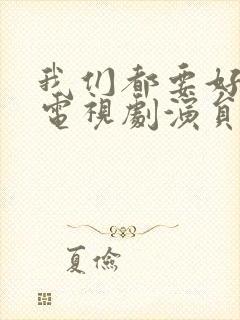 我们都要好
電視劇演員
夏儉